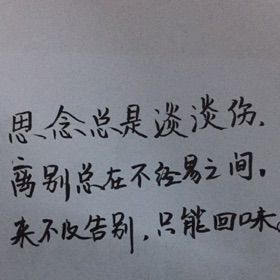 思念总是淡淡伤，
离别总在不经易之间。
来不及告别，只能回味。